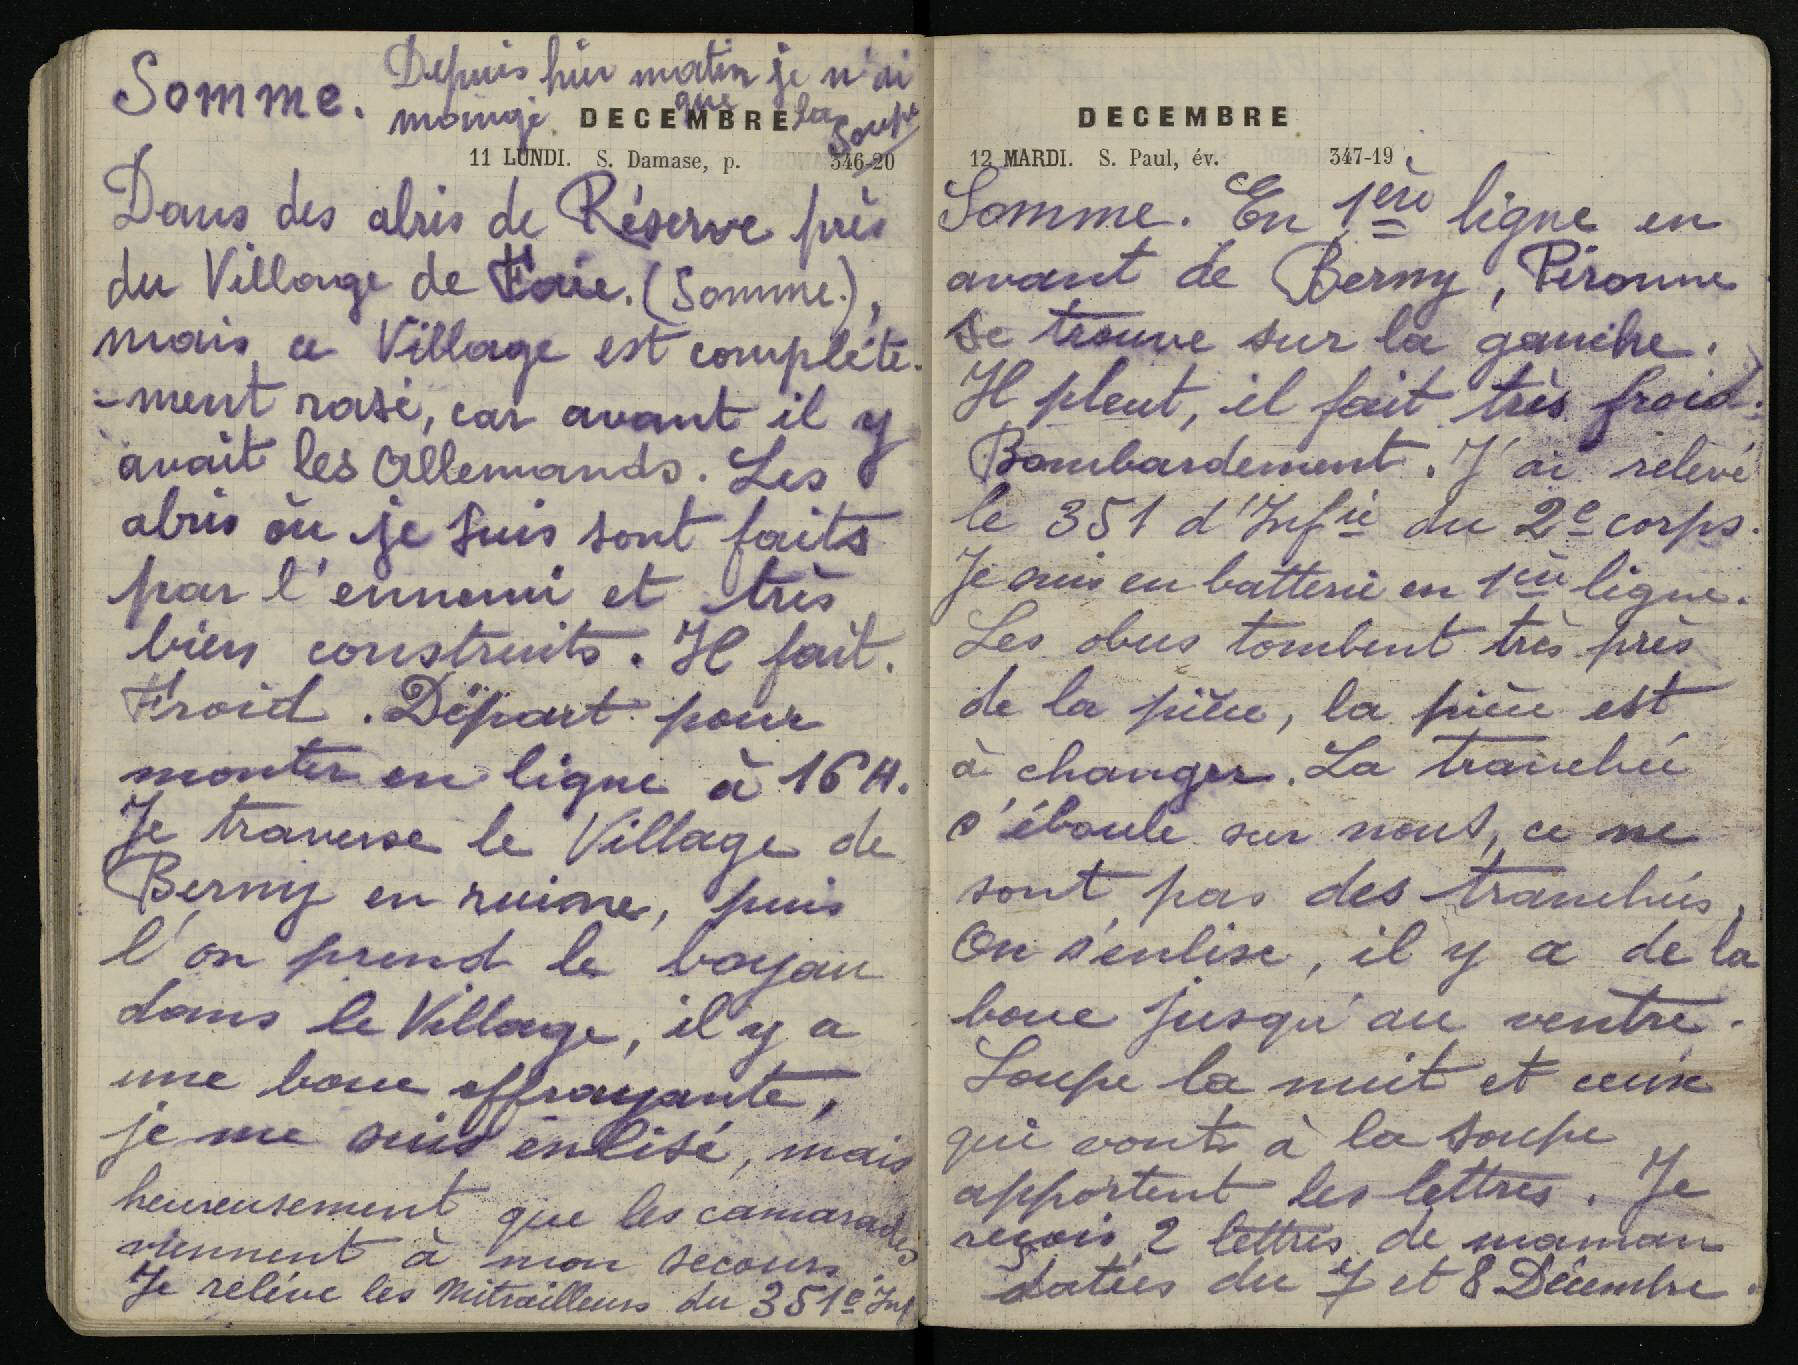 Somme. Depuis hier matin je n'ai
mangé que la soupe
DECEMBRE
11 LUNDI. S. Damase, p. 346-20
Dans des abris de Réserve près
du Village de Faie. (Somme.),
mais ce Village est complète-
-ment rasé, car avant il y
avait les Allemands. Les
abris où je suis sont faits
par l'ennemi et très
bien construits. Il fait.
Froid. Départ pour
monter en ligne à 16 H.
Je traverse le Village de
Berny en ruine, puis
l'on prend le boyau
dans le Village, il y a
une boue effrayante,
je me suis enlisé, mais
heureusement que les camarades
viennent à mon secours
Je relève les Mitrailleurs du 351e Inf
DECEMBRE
12 MARDI. S. Paul, év. 347-19
Somme. En 1ère ligne en
avant de Berny, Péronne
se trouve sur la gauche.
Il pleut, il fait très froid.
Bombardement. J'ai relevé
le 351 d'Infie du 2e corps.
Je suis en batterie en 1ère ligne.
Les obus tombent très près
de la pièce, la pièce est
à changer. La tranchée
s'éboule sur nous, ce ne
sont pas des tranchées,
On s'enlise, il y a de la
boue jusqu'au ventre.
Soupe la nuit et ceux
qui vont à la soupe
apportent les lettres. Je
reçois 2 lettres de maman
datées du 7 et 8 Décembre.